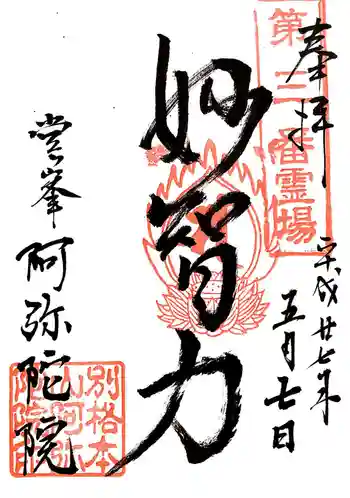 奉拝
第三番霊場
平成廿七年
五月七日
妙智力
峯 阿弥陀院
別格本
山阿弥
陀院印